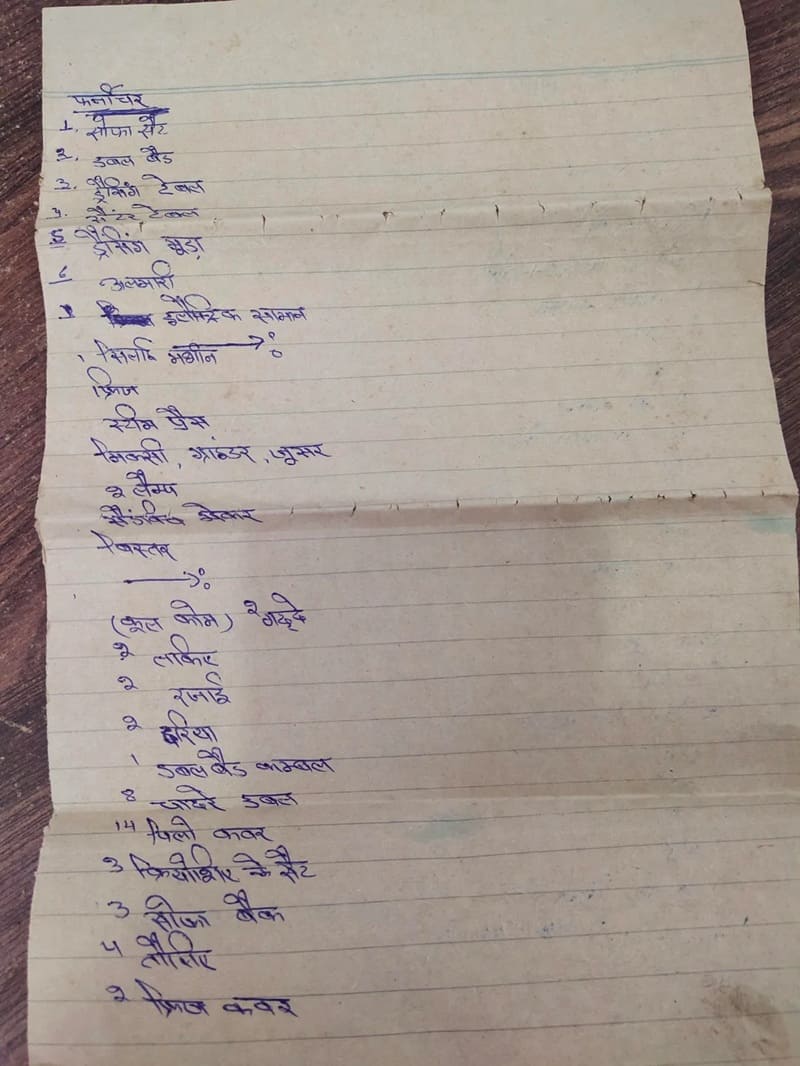 फर्नीचर
1. सोफा सैट
२. डबल बैड
3. ड्रैसिंग टेबल
४. सैंटर टेबल
5 ड्रैसिंग मूड़ा
6 अलमारी
इलैक्ट्रिक सामान
सिलाई मशीन →
फ्रिज
स्टीम प्रैस
मिक्सी, ग्राईन्डर, जूसर
२ लैम्प
सैंडविच मेकर
बिस्तर
→
(कूल फोम) २ गद्दे
२ तकिए
२ रजाई
२ दरिया
1 डबल बैड कम्बल
8 चादरे डबल
14 पिलो कवर
3 क्रियोशिए के सैट
3 सोफा बैक
4 तौलिए
२ फ्रिज कवर